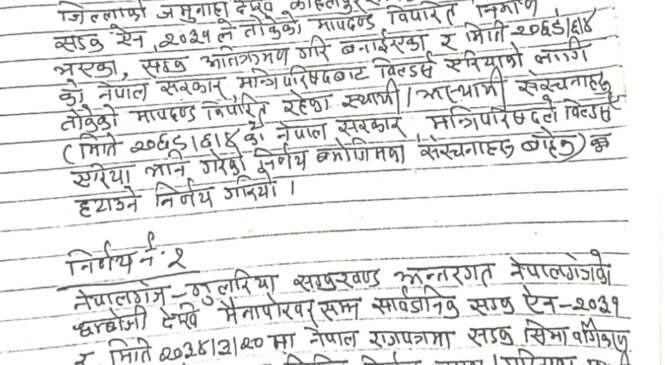 जिल्लाको जमुनाहा देखि कोहलपुर
सडक ऐन, २०३१ ले तोकेको मापदण्ड विपरित निर्माण
भएका, सडक अतिक्रमण गरि बनाईएका र मिति २०६३।६।४
को नेपाल सरकार मन्त्रिपरिषदबाट बिल्डर्स एरियाको लागि
तोकेको मापदण्ड विपरित रहेका स्थायी / अस्थायी संरचनाहरु
(मिति २०६३।६।४ को नेपाल सरकार मन्त्रिपरिषदले बिल्डर्स
एरिया भनि गरेको निर्णय बमोजिमका संरचनाहरु बाहेक)
हटाउने निर्णय गरियो ।
निर्णय नं. २
नेपालगंज-गुलरिया सडकखण्ड अन्तरगत नेपालगंजको
धम्बोजी देखि मैनापोखर सम्म सार्वजनिक सडक ऐन-२०३१
र मिति २०३४/३/२० मा नेपाल राजपत्रमा सडक सिमा